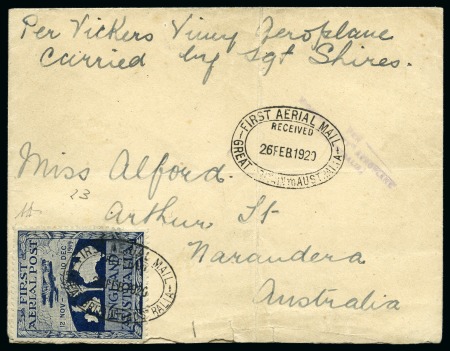 Per Vickers Vimy Aeroplane
carried by Sgt Shires.
FIRST AERIAL MAIL
RECEIVED
26 FEB 1920
GREAT BRITAIN TO AUSTRALIA
Miss Alford.
23
Arthur St
Narandera
Australia
FIRST
AERIAL POST
12 NOV. 10 DEC.
ENGLAND
AUSTRALIA
AERIAL MAIL
AUSTRALIA